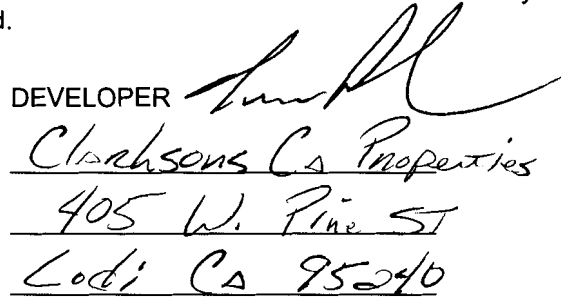 d.
DEVELOPER
Clarksons Ca Properties
405 W. Pine ST
Lodi Ca 95240